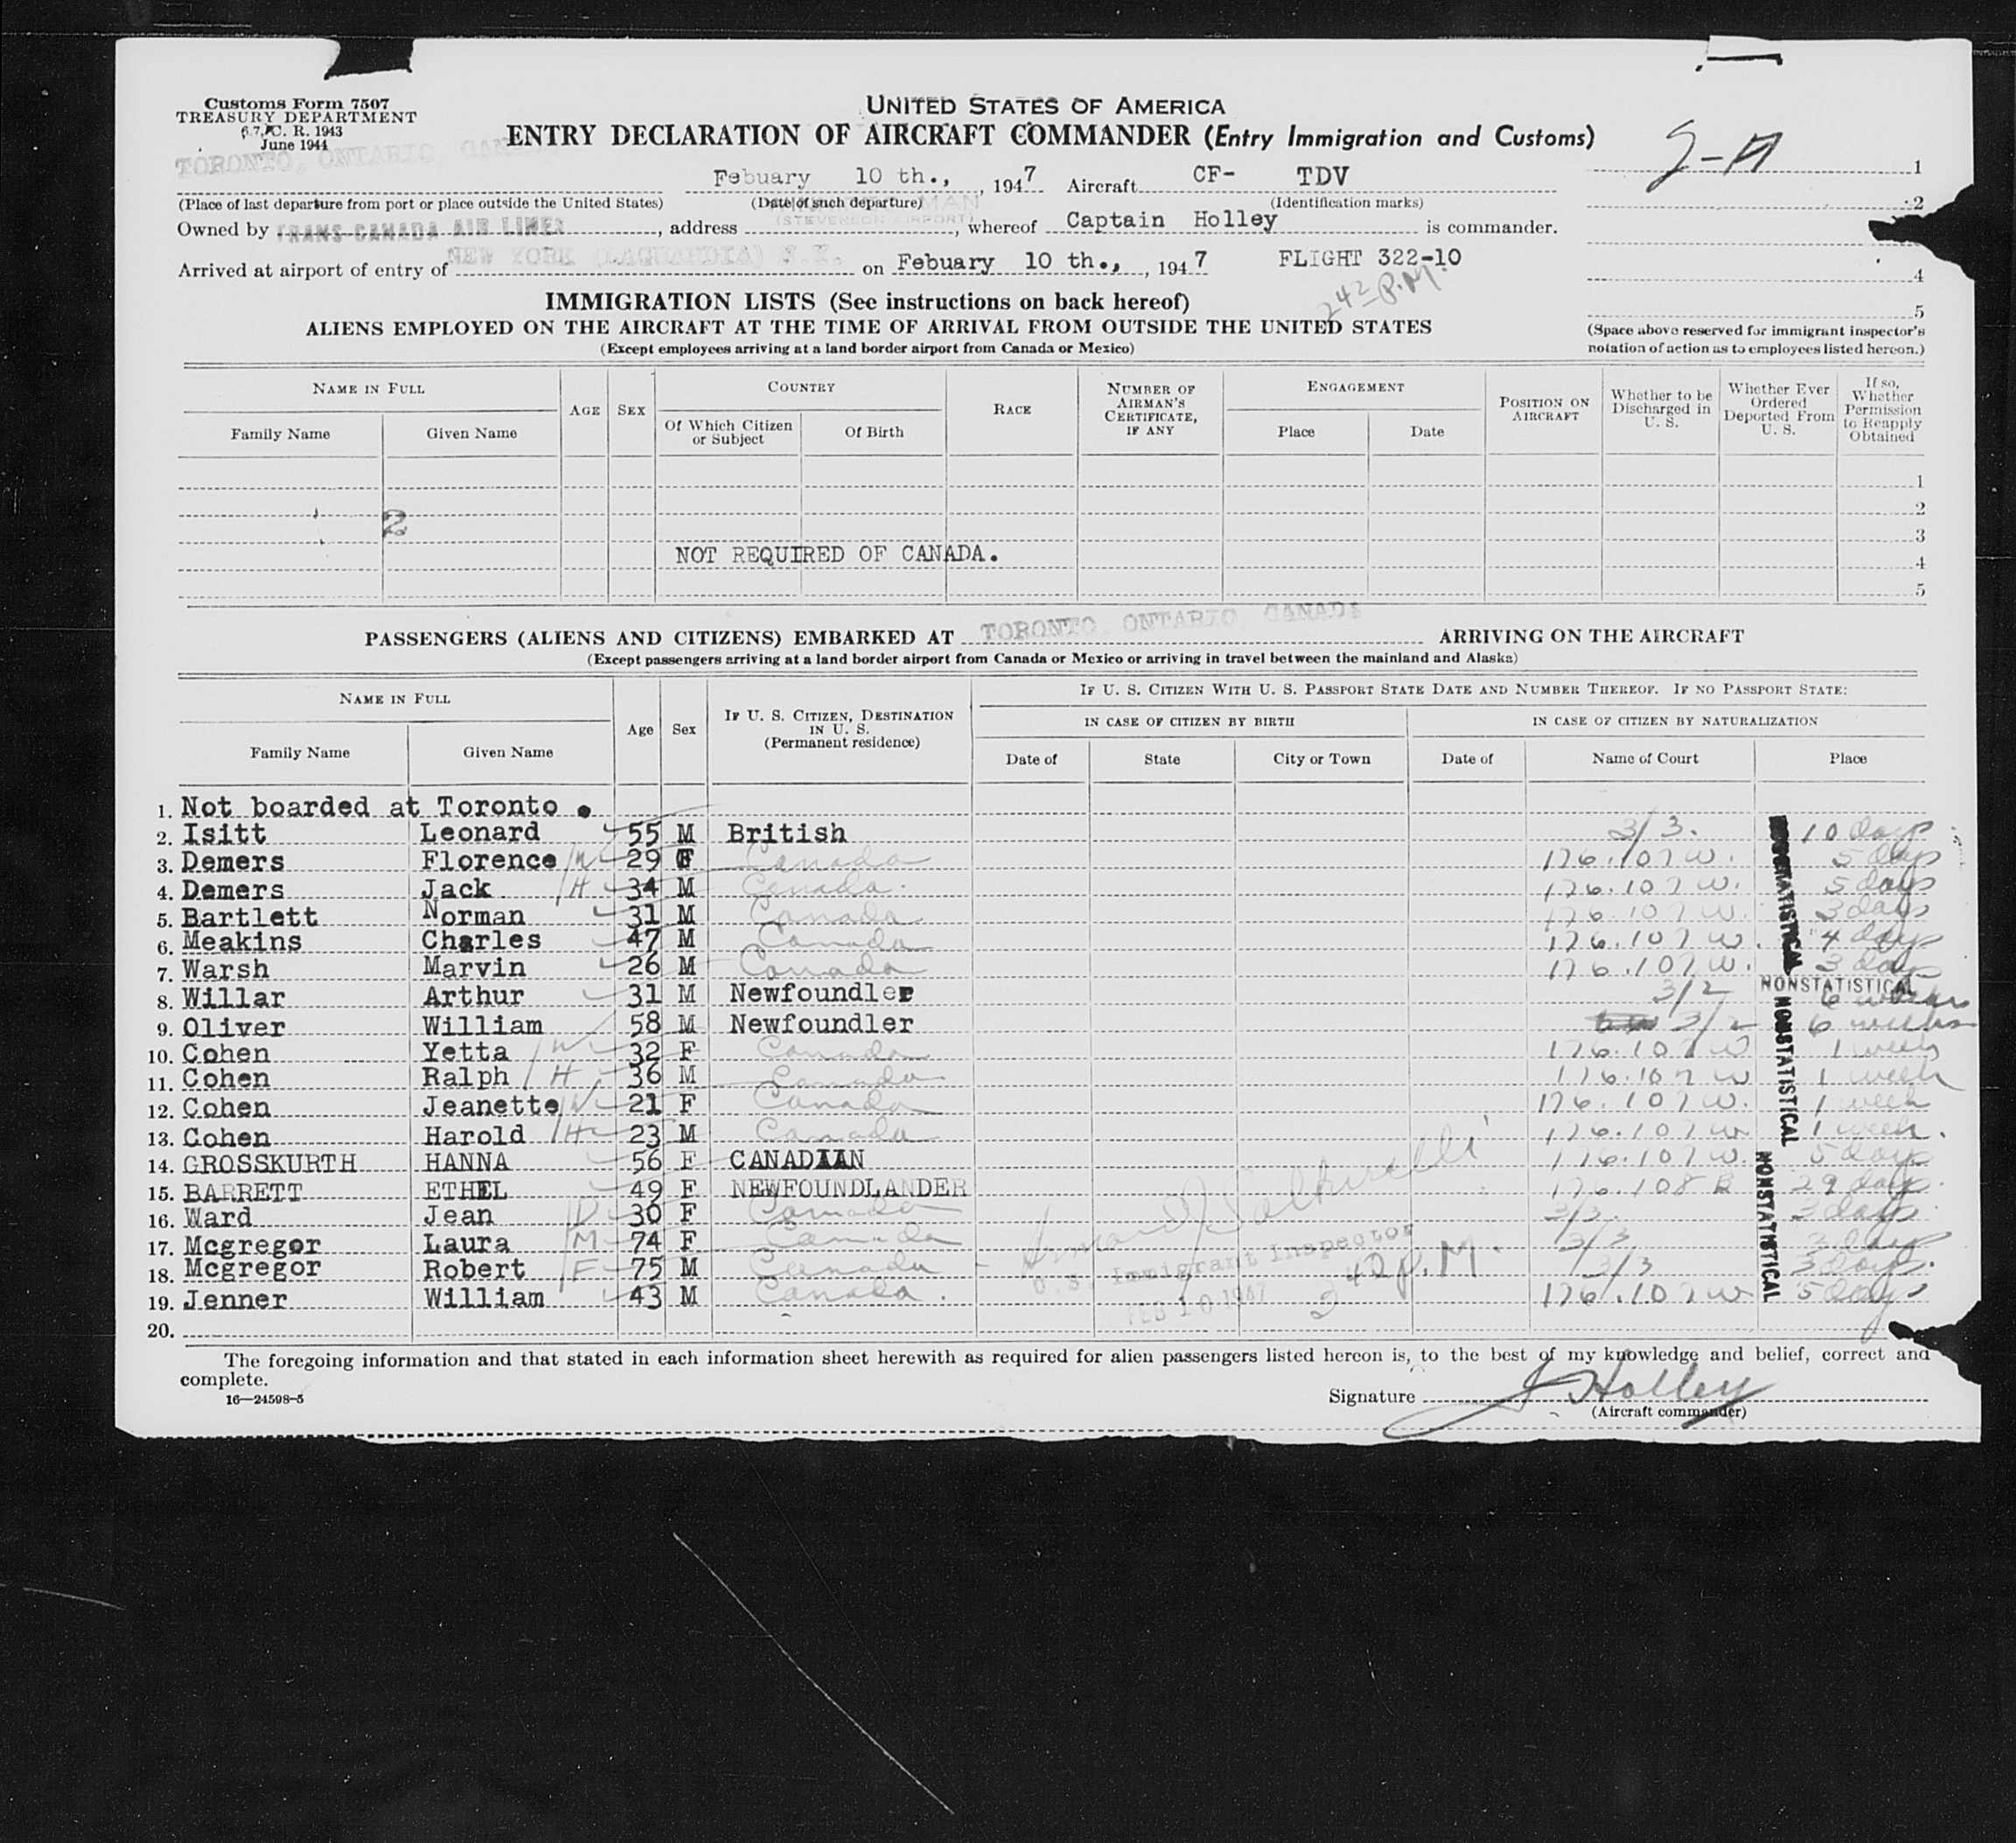 Customs Form 7507
TREASURY DEPARTMENT
6.7, C. R. 1943
June 1944
UNITED STATES OF AMERICA
ENTRY DECLARATION OF AIRCRAFT COMMANDER (Entry Immigration and Customs)
TORONTO, ONTARIO, CANADA
Febuary 10 th., , 1947 Aircraft CF- TDV
(Place of last departure from port or place outside the United States) (Date of such departure) (Identification marks)
(STEVENSON AIRPORT)
Owned by TRANS-CANADA AIR LINES , address , whereof Captain Holley is commander.
Arrived at airport of entry of NEW YORK (LAGUARDIA) N.Y. on Febuary 10 th., , 1947 FLIGHT 322-10
242 P.M.
1
2
4
5
(Space above reserved for immigrant inspector's notation of action as to employees listed hereon.)
IMMIGRATION LISTS (See instructions on back hereof)
ALIENS EMPLOYED ON THE AIRCRAFT AT THE TIME OF ARRIVAL FROM OUTSIDE THE UNITED STATES
(Except employees arriving at a land border airport from Canada or Mexico)
NAME IN FULL AGE SEX COUNTRY RACE NUMBER OF AIRMAN'S CERTIFICATE, IF ANY ENGAGEMENT POSITION ON AIRCRAFT Whether to be Discharged in U. S. Whether Ever Ordered Deported From U. S. If so, Whether Permission to Reapply Obtained
Family Name Given Name Of Which Citizen or Subject Of Birth Place Date
1
2
2
3
NOT REQUIRED OF CANADA. 4
5
PASSENGERS (ALIENS AND CITIZENS) EMBARKED AT TORONTO, ONTARIO, CANADA ARRIVING ON THE AIRCRAFT
(Except passengers arriving at a land border airport from Canada or Mexico or arriving in travel between the mainland and Alaska)
NAME IN FULL Age Sex IF U. S. CITIZEN, DESTINATION IN U. S. (Permanent residence) IF U. S. CITIZEN WITH U. S. PASSPORT STATE DATE AND NUMBER THEREOF. IF NO PASSPORT STATE:
IN CASE OF CITIZEN BY BIRTH IN CASE OF CITIZEN BY NATURALIZATION
Family Name Given Name Date of State City or Town Date of Name of Court Place
1. Not boarded at Toronto .
2. Isitt Leonard 55 M British 3/3. 10 days
3. Demers Florence W 29 F Canada 176.107 W. 5 days
4. Demers Jack H 34 M Canada 176.107 W. 5 days
5. Bartlett Norman 31 M Canada 176.107 W. 3 days
6. Meakins Charles 47 M Canada 176.107 W. 4 days
7. Warsh Marvin 26 M Canada 176.107 W. 3 days
8. Willar Arthur 31 M Newfoundler 3/2 6 weeks
9. Oliver William 58 M Newfoundler 3/2 6 weeks
10. Cohen Yetta W 32 F Canada 176.107 W 1 week
11. Cohen Ralph H 36 M Canada 176.107 W 1 week
12. Cohen Jeanette W 21 F Canada 176.107 W. 1 week
13. Cohen Harold H 23 M Canada 176.107 W 1 week.
14. GROSSKURTH HANNA 56 F CANADIAN 176.107 W. 5 days
15. BARRETT ETHEL 49 F NEWFOUNDLANDER 176.108 B 29 days
16. Ward Jean D 30 F Canada 3/3. 3 days
17. Mcgregor Laura M 74 F Canada 3/3 3 days
18. Mcgregor Robert F 75 M Canada 3/3 3 days.
19. Jenner William 43 M Canada. 176.107 W 5 days
20.
NONSTATISTICAL
NONSTATISTICAL
NONSTATISTICAL
NONSTATISTICAL
U. S. Immigrant Inspector
FEB 10 1947
2 40 p.M.
The foregoing information and that stated in each information sheet herewith as required for alien passengers listed hereon is, to the best of my knowledge and belief, correct and
complete.
16—24598-5
Signature J Holley
(Aircraft commander)